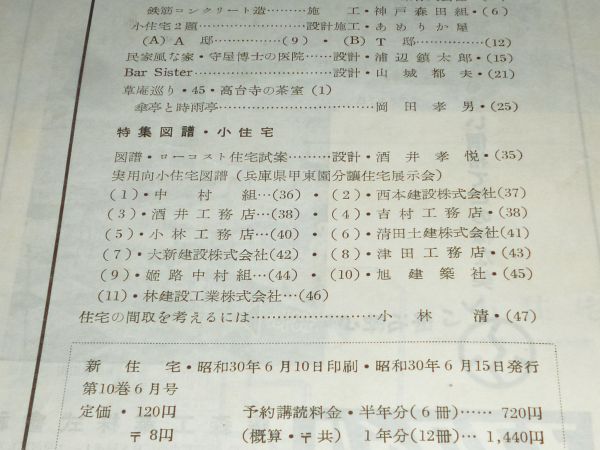 鉄筋コンクリート造………施　工・神戸森田組・(6)
小住宅2題………………設計施工・あめりか屋
(A) A　邸…………(9)・(B) T　邸…………(12)
民家風な家・守屋博士の医院……設計・浦辺鎮太郎・(15)
Bar Sister………………………設計・山城都夫・(21)
草庵巡り・45・高台寺の茶室 (1)
傘亭と時雨亭……………………岡田孝男・(25)
特集図譜・小住宅
図譜・ローコスト住宅試案………設計・酒井孝悦・(35)
実用向小住宅図譜（兵庫県甲東園分譲住宅展示会）
(1)・中　村　組…(36)・(2)・西本建設株式会社(37)
(3)・酒井工務店…(38)・(4)・吉村工務店・(38)
(5)・小林工務店…(40)・(6)・清田土建株式会社・(41)
(7)・大新建設株式会社(42)・(8)・津田工務店・(43)
(9)・姫路中村組…(44)・(10)・旭建築社・(45)
(11)・林建設工業株式会社…(46)
住宅の間取を考えるには……………………小　林　清・(47)
新　住　宅・昭和30年6月10日印刷・昭和30年6月15日発行
第10巻6月号
定価・120円　予約購読料金・半年分(6冊)…… 720円
〒 8円　(概算・〒共)　1年分(12冊)… 1,440円